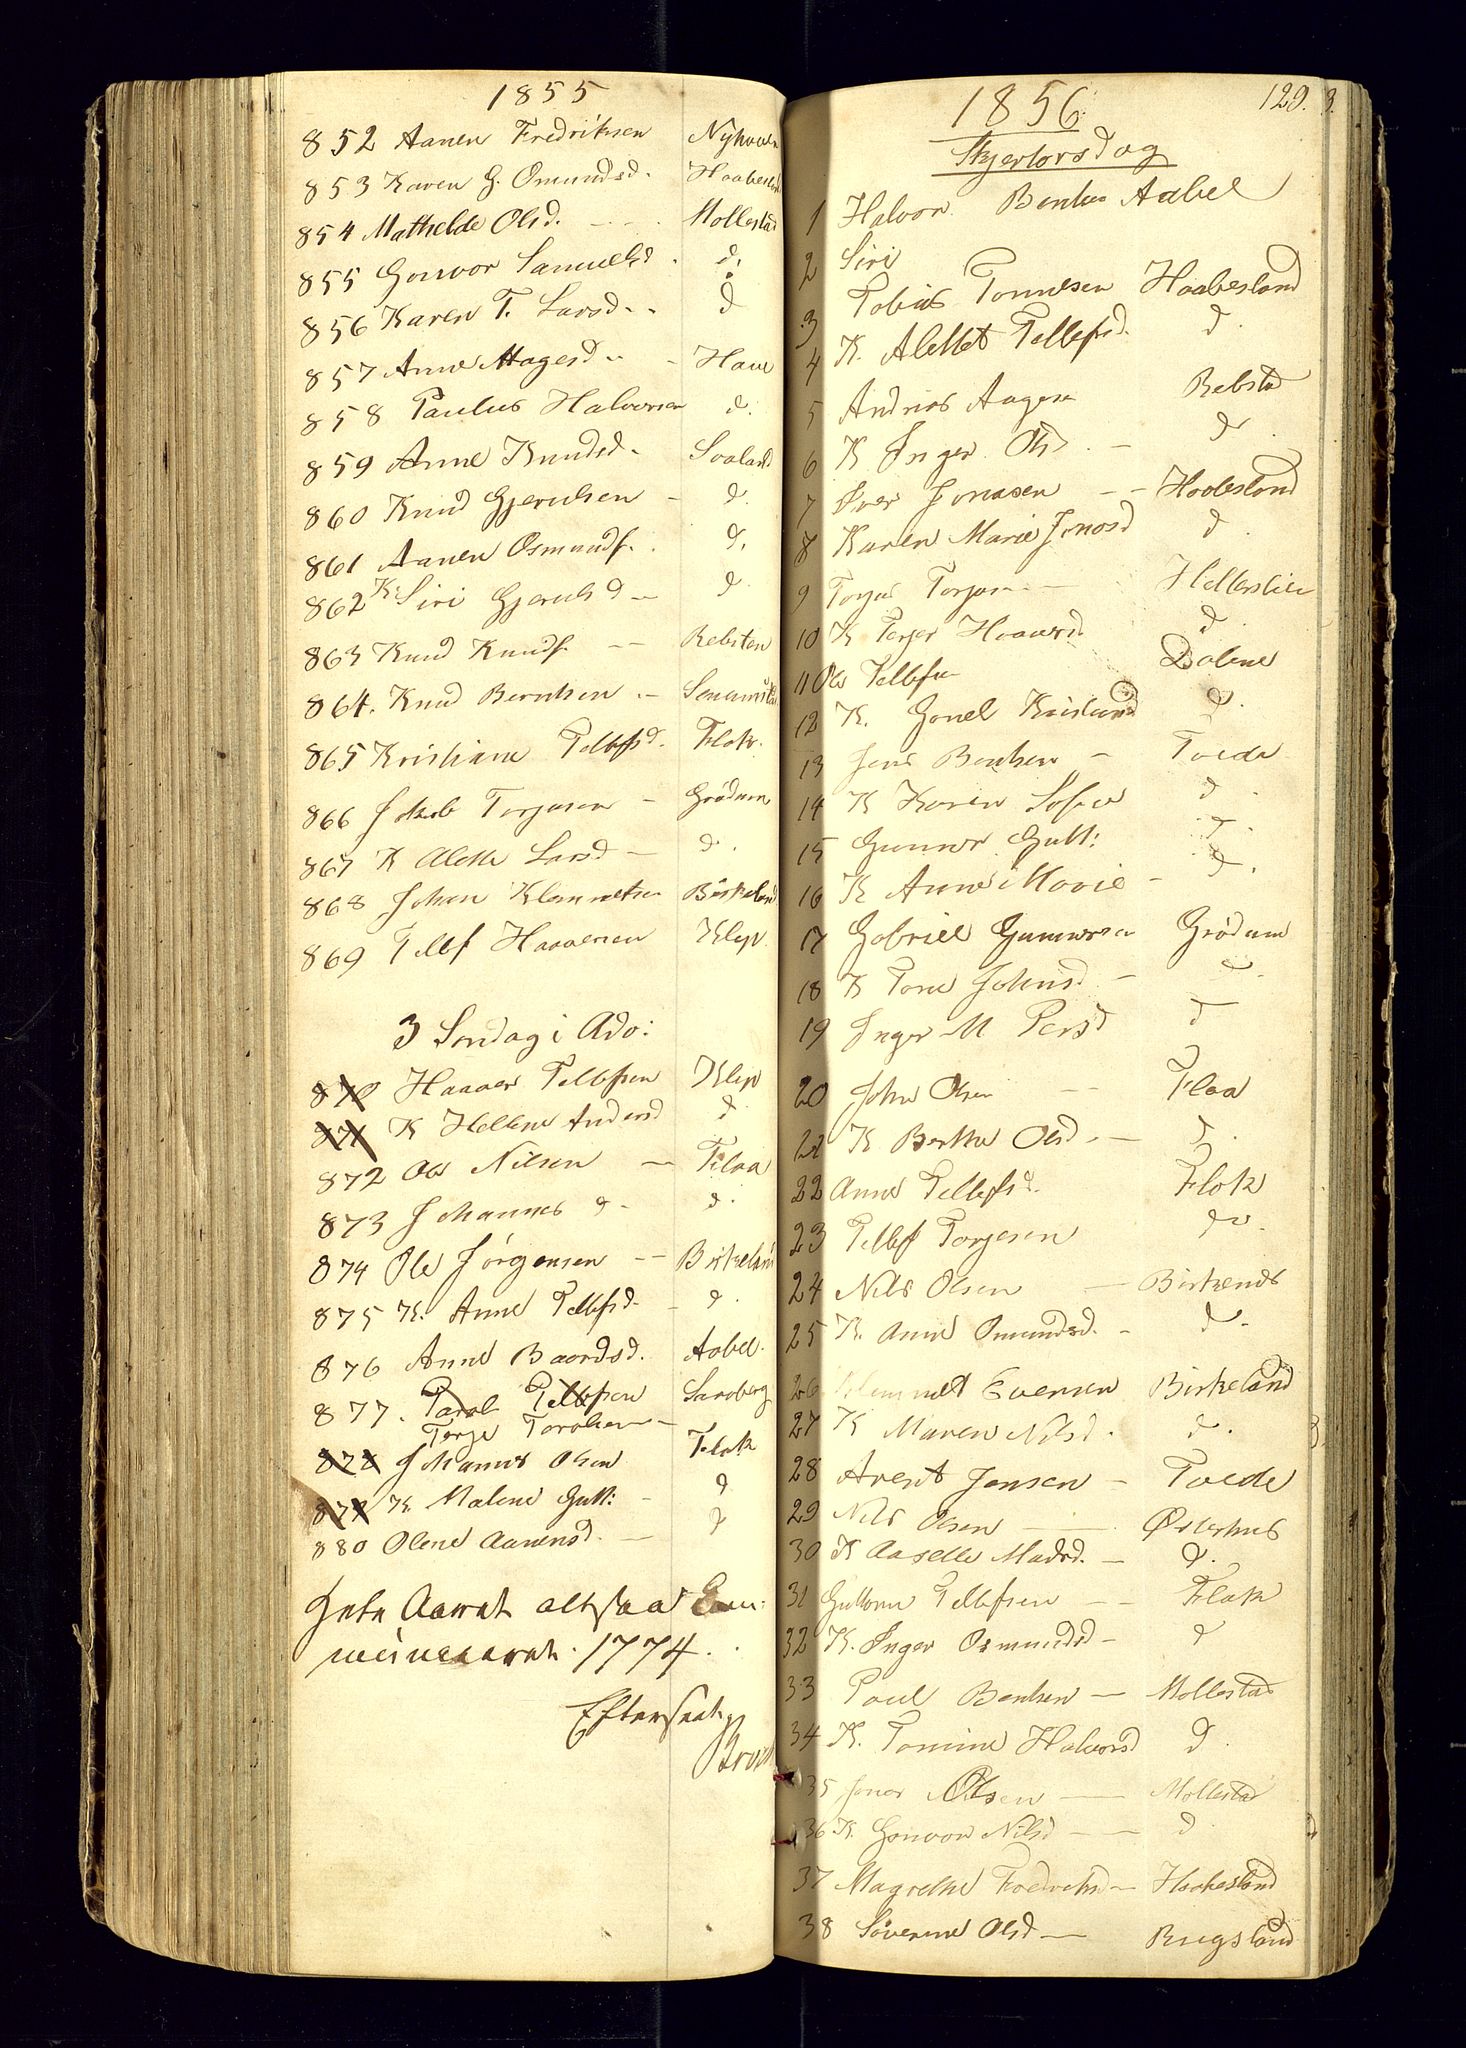 1855
852 Aanen Fredriksen Nyhaven
853 Karen G. Omundsd. Haabesland
854 Mathelde Olsd. Mollestad
855 Gonvor Samuelsd. d.
856 Karen T. Larsd. d
857 Anne Aagesd Have
858 Paulus Halvorsen d.
859 Anne Knudsd. Svaland
860 Knud Gjerulsen d.
861 Aanen Osmunds. d.
862 K. Siri Gjerulsd d
863 Knud Knuds. Rebsten
864. Knud Berntsen
865 Kristiane Tellefsd. Flak.
866 Jakob Torjusen Grødum
867 K Alette Larsd d.
868 Johan Klemmetsen Birkeland
869 Tellef Haaversen Klep
3 Søndag i Adv:
870 Haaver Tellefsen Klep
871 K Hellene Andersd d
872 Ole Nilsen Flaa
873 Johannes d. d.
874 Ole Jørgensen Birkeland
875 K. Anne Tellefsd. d.
876 Anne Baardsd. Aabel.
877. Tarol Tellefsen Sandberg
Terje Tarolsen
878 Johannes Olsen Flak
879 K. Malene Gutt: d
880 Olene Aanensd. d
hele Aaret altsaa Com:
municerende 1774.
Efterseet,
1856
129.
Skjertorsdag
1 Halvor Bentsen Aabel
2 Siri
3 Tobias Tonnesen Haabesland
4 K. Alettet Tellefsd. d.
5 Andrias Aagesen Rebsten
6 K Inger Olsd. d.
7 Iver Jonasen Haabesland
8 Karen Marie Jonasd d.
9 Torjus Torjusen
10 K Terjer Haaversd d.
11 Ole Tellefsen Dalene
12 K. Gonel Kristiansd d.
13 Jens Bentsen Tvede
14 K Karen Sofie d.
15 Gunner Gutt: d.
16 K Anne Marie d.
17 Gabriel Gunnersen Grødum
18 K Tone Johnsd d.
19 Inger M Persd d
20 John Olsen Flaa
21 K Berthe Olsd. d.
22 Anne Tellefsd. Flak
23 Tellef Torjesen do.
24 Nils Olsen
25 K. Anne Omundsd. d.
26 Klemmet Evensen Birkeland
27 K Maren Nilsd. d.
28 Arent Jensen Tvede
29 Nils Olsen Østerhus
30 K Aaselle Madsd. d.
31 Guttorm Tellefsen Flak
32 K. Inger Osmundsd d
33 Poul Bentsen Mollestad
34 K. Tomine Halvorsd d.
35 Jonas Olsen Mollestad
36 K. Gonvor Nilsd d
37 Magrethe Fredriksd Haabesland
38 Søverine Olsd Rugsland